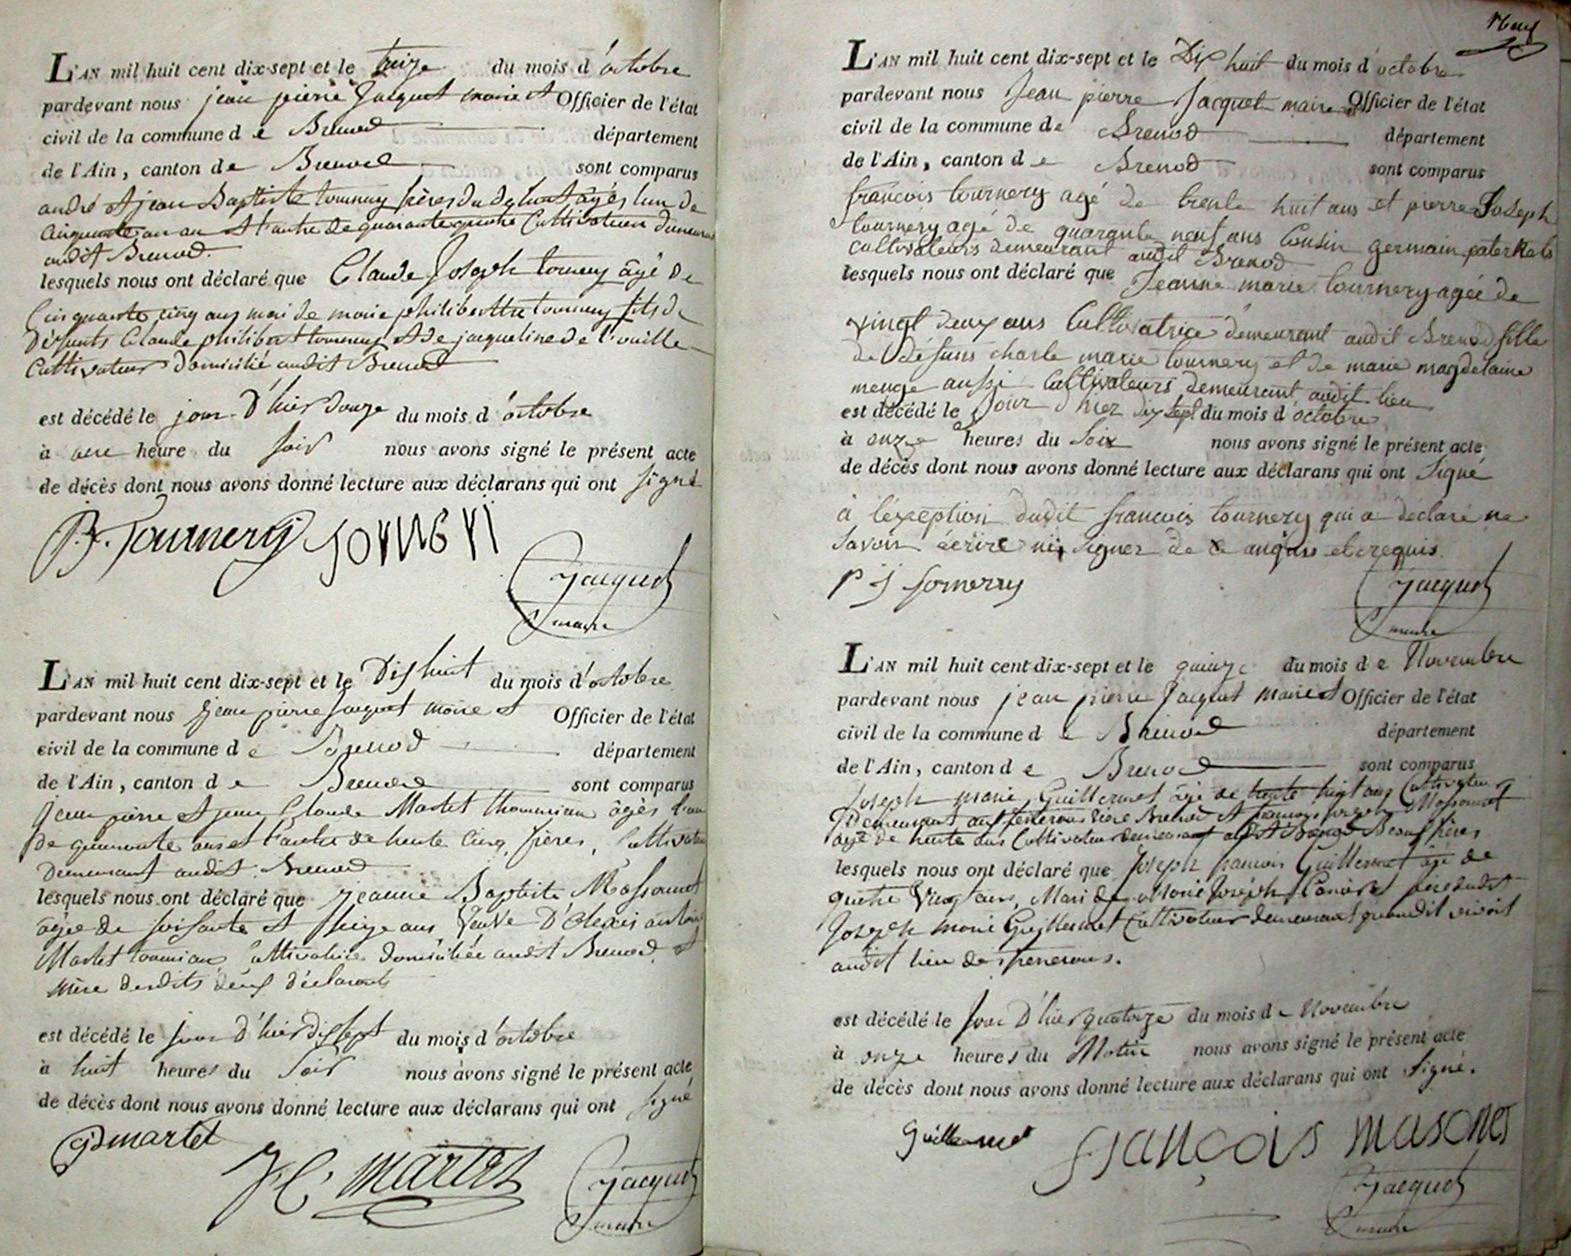 L'AN mil huit cent dix-sept et le treize du mois d'octobre
pardevant nous jean pierre Jacquet maire et Officier de l'état
civil de la commune de Brenod département
de l'Ain, canton de Brenod sont comparus
andré et jean Baptiste tournery frères du défunt âgés lun de
cinquante un an et l'autre de quarante quatre Cultivateurs demeurant
audit Brenod.
lesquels nous ont déclaré que Claude Joseph tournery âgé de
Cinquante cinq ans mari de marie philiberthe tournery fils de
Défunts Claude philibert tournery et de jacqueline de
Cultivateur domicilié audit Brenod
est décédé le jour d'hier douze du mois d'octobre
à une heure du soir nous avons signé le présent acte
de décès dont nous avons donné lecture aux déclarans qui ont signé
B. Tournery TORNERI
Jacquet
maire
L'AN mil huit cent dix-sept et le Dishuit du mois d'octobre
pardevant nous jean pierre Jacquet maire et Officier de l'état
civil de la commune de Brenod département
de l'Ain, canton de Brenod sont comparus
Jean pierre et jean Claude Martet âgés l'un
de quarante ans et l'autre de trente cinq, frères, Cultivateurs
Demeurant audit Brenod
lesquels nous ont déclaré que jeanne Baptiste Massonnet
âgée de soisante et seize ans Veuve D'Alexis antoine
Martet Cultivatrice domiciliée audit Brenod et
mère desdits deux déclarants
est décédé le jour d'hier dissept du mois d'octobre
à huit heures du soir nous avons signé le présent acte
de décès dont nous avons donné lecture aux déclarans qui ont signé
martet
J C martet
Jacquet
maire
L'AN mil huit cent dix-sept et le Dix huit du mois d'octobre
pardevant nous Jean pierre Jacquet maire et Officier de l'état
civil de la commune de Brenod département
de l'Ain, canton de Brenod sont comparus
françois tournery agé de trente huit ans et pierre Joseph
tournery agé de quarante neuf ans Cousin germain paternels
cultivateurs demeurant audit Brenod
lesquels nous ont déclaré que Jeanne marie tournery agée de
vingt deux ans Cultivatrice demeurant audit Brenod fille
de défuns charle marie tournery et de marie magdelaine
menge aussi Cultivateurs demeurant audit lieu
est décédé le Jour d'hier dix sept du mois d'octobre
à onze heures du Soix nous avons signé le présent acte
de décès dont nous avons donné lecture aux déclarans qui ont Signé
à l'exeption dudit françois tournery qui a déclaré ne
Savoir écrire ni signer de ce enquis et requis
P J tornerry
Jacquet
maire
L'AN mil huit cent dix-sept et le quinze du mois de Novembre
pardevant nous jean pierre Jacquet maire et Officier de l'état
civil de la commune de Brenod département
de l'Ain, canton de Brenod sont comparus
Joseph marie Guillermet âgé de trente huit ans Cultivateur
Demeurant et françois joseph Massonnet
âgé de trente ans Cultivateur demeurant audit Beaufrères
lesquels nous ont déclaré que Joseph françois Guillermet âgé de
quatre Vingt ans, Mari de Marie Joseph père dudit
Joseph marie Guillermet Cultivateur demeurant quandil vivoit
audit lieu des
est décédé le jour D'hier quatorze du mois de Novembre
à onze heures du Matin nous avons signé le présent acte
de décès dont nous avons donné lecture aux déclarans qui ont Signé.
Guillermet françois masonet
Jacquet
maire